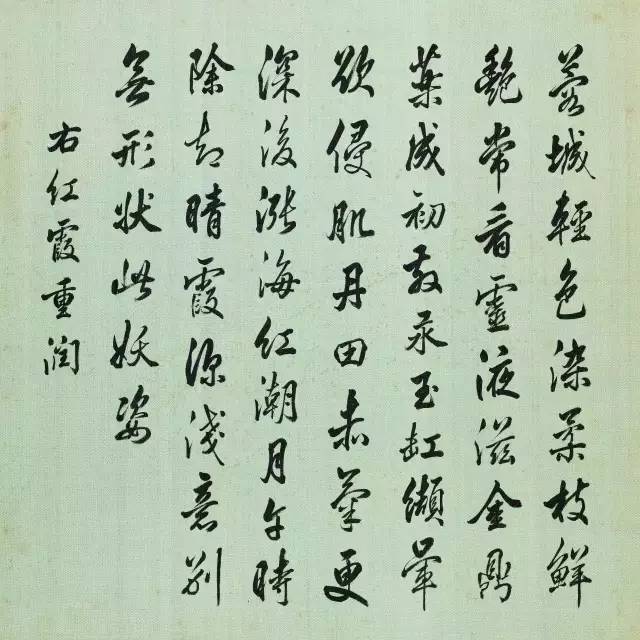 蓉城輕色染柔枝鮮
艷常看靈液滋金鼎
藥成初汞玉缸纈暈
欲侵肌丹田赤氣更
深後漲海紅潮月午時
除却晴霞深淺意別
無形狀此妖姿
右紅霞重潤